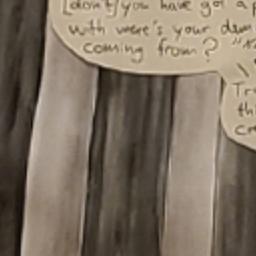 [don't] you have got a p
with where's your dam
coming from? "
Tr
thi
cr